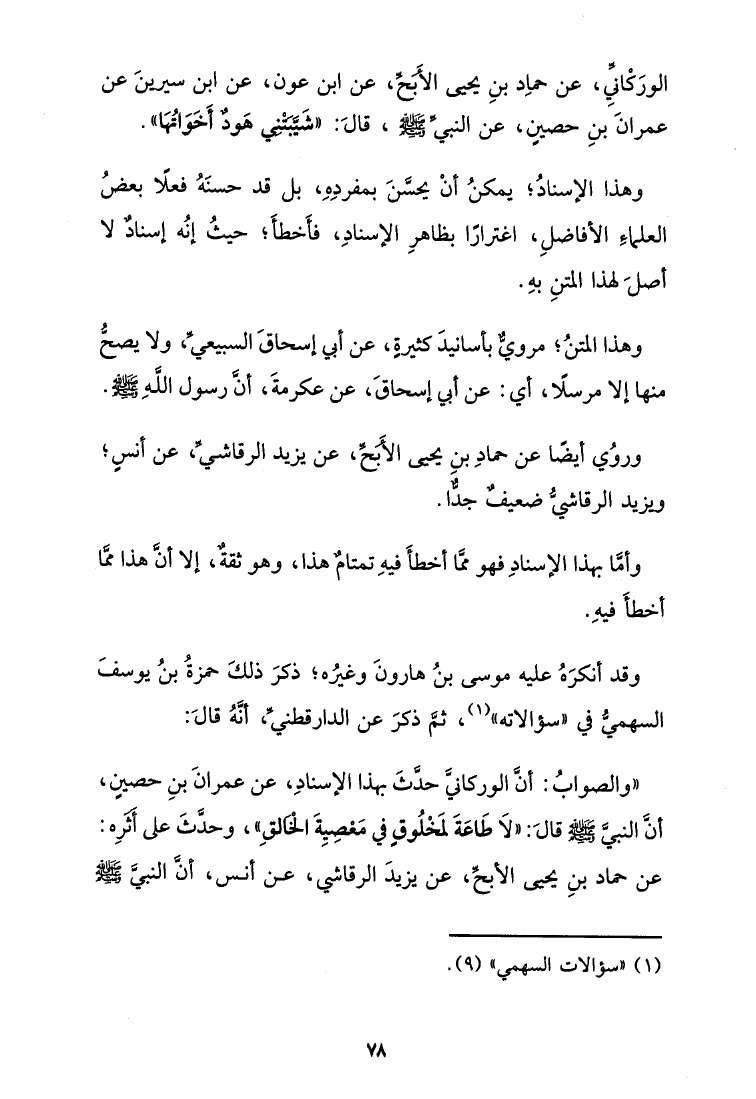 الورَكْانيِّ، عن حمادِ بنِ يحيى الأَبَحِّ، عن ابن عون، عن ابن سيرينَ عن
عمرانَ بنِ حصينٍ، عن النبيِّ ﷺ ، قالَ: «شَيَّبَتْنِي هَودٌ أَخَوَاتُهَا».
وهذا الإسنادُ؛ يمكنُ أنْ يحسَّنَ بمفردِهِ، بل قد حسنَهُ فعلًا بعضُ
العلماءِ الأفاضلِ، اغترارًا بظاهرِ الإسنادِ، فأَخطأَ؛ حيثُ إنُه إسنادٌ لا
أصلَ لهذا المتنِ بهِ.
وهذا المتنُ؛ مرويٌّ بأسانيدَ كثيرةٍ، عن أبي إسحاقَ السبيعيِّ، ولا يصحُّ
منها إلا مرسلًا، أي: عن أبي إسحاقَ، عن عكرمةَ، أنَّ رسول اللَّهِ ﷺ.
ورُوي أيضًا عن حمادِ بنِ يحيى الأَبَحِّ، عن يزيد الرقاشيِّ، عن أنسٍ؛
ويزيد الرقاشيُّ ضعيفٌ جدًّا.
وأمَّا بهذا الإسنادِ فهو ممَّا أخطأَ فيهِ تمتامٌ هذا، وهو ثقةٌ، إلا أنَّ هذا ممَّا
أخطأَ فيهِ.
وقد أنكرَهُ عليه موسى بنُ هارونَ وغيرُه؛ ذكرَ ذلكَ حمزةُ بنُ يوسفَ
السهميُّ في «سؤالاته»(١)، ثمَّ ذكرَ عن الدارقطنيِّ، أنَّهُ قالَ:
«والصوابُ: أنَّ الوركانيَّ حدَّثَ بهذا الإسنادِ، عن عمرانَ بنِ حصينٍ،
أنَّ النبيَّ ﷺ قالَ: «لَا طَاعَةَ لمَخْلُوقٍ فِي مَعْصِيَةِ الْخَالقِ»، وحدَّثَ على أَثَرِه:
عن حماد بنِ يحيى الأبحِّ، عن يزيدَ الرقاشي، عن أنس، أنَّ النبيَّ ﷺ
(١) «سؤالات السهمي» (٩).
٧٨